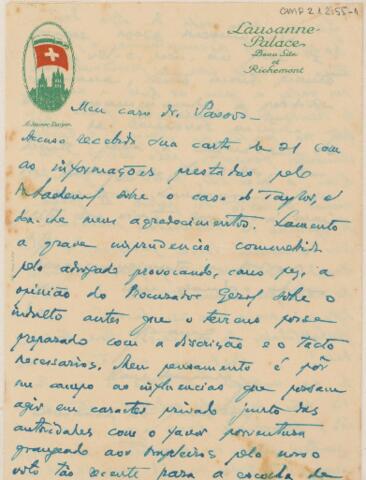 CMP 2.1.2.55-1
Lausanne-
Palace
Beau Site
et
Richemont
Meu caro dr. Passos -
Accuso recebida sua carta de 21 com
as informações prestadas pelo
sobre o caso do Taylor, e
dou-lhe meus agradecimentos. Lamento
a grave imprudencia commettida
pelo advogado provocando, como fez, a
opinião do Procurador Geral sobre o
indulto antes que o terreno fosse
preparado com a discrição e o tacto
necessarios. Meu pensamento é pôr
em campo as influencias que possam
agir em caracter privado junto das
autoridades com o favor porventura
grangeado aos brasileiros pelo nosso
voto tão recente para a escolha de